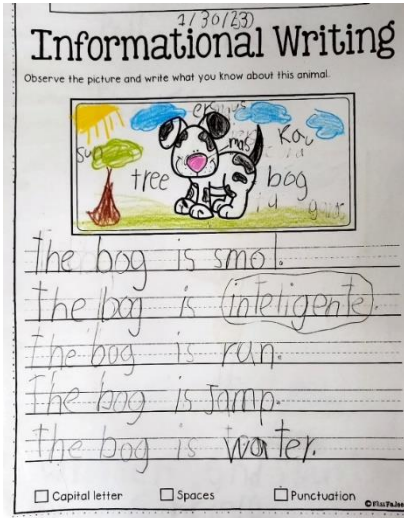 1/30/23
Informational Writing
Observe the picture and write what you know about this animal.
sun
tree
bog
The bog is smol.
The bog is inteligente.
The bog is run.
The bog is Jamp.
The bog is water.
Capital letter Spaces Punctuation